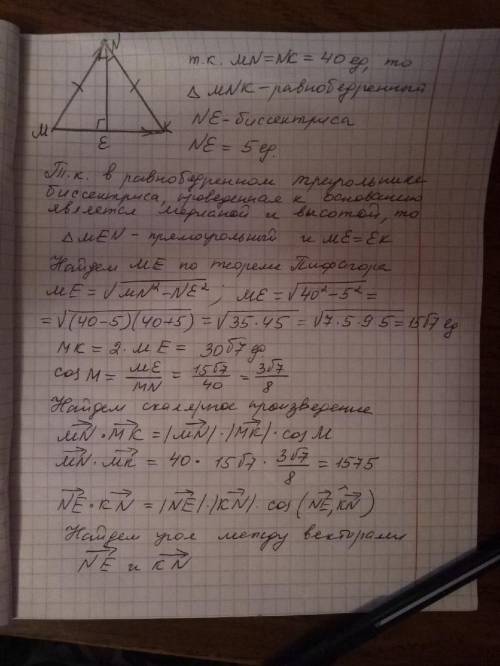 N
M
E
K
т.к. MN=NK=40 ед, то
△ MNK-равнобедренный
NE-биссектриса
NE = 5 ед.
Т.к. в равнобедренном треугольнике
биссектриса, проведенная к основанию
является медианой и высотой, то
△ MEN - прямоугольный и ME=EK
Найдем ME по теореме Пифагора
ME=√(MN²-NE²) ; ME=√(40²-5²)=
=√((40-5)(40+5))=√(35·45)=√(7·5·9·5)=15√7 ед
MK=2·ME= 30√7 ед
cos M= ME/MN = 15√7/40 = 3√7/8
Найдем скалярное произведение
MN⃗ · MK⃗ = |MN⃗| · |MK⃗| · cos M
MN⃗ · MK⃗ = 40 · 15√7 · 3√7/8 = 1575
NE⃗ · KN⃗ = |NE⃗|·|KN⃗| · cos (NE⃗,^KN⃗)
Найдем угол между векторами
NE⃗ и KN⃗